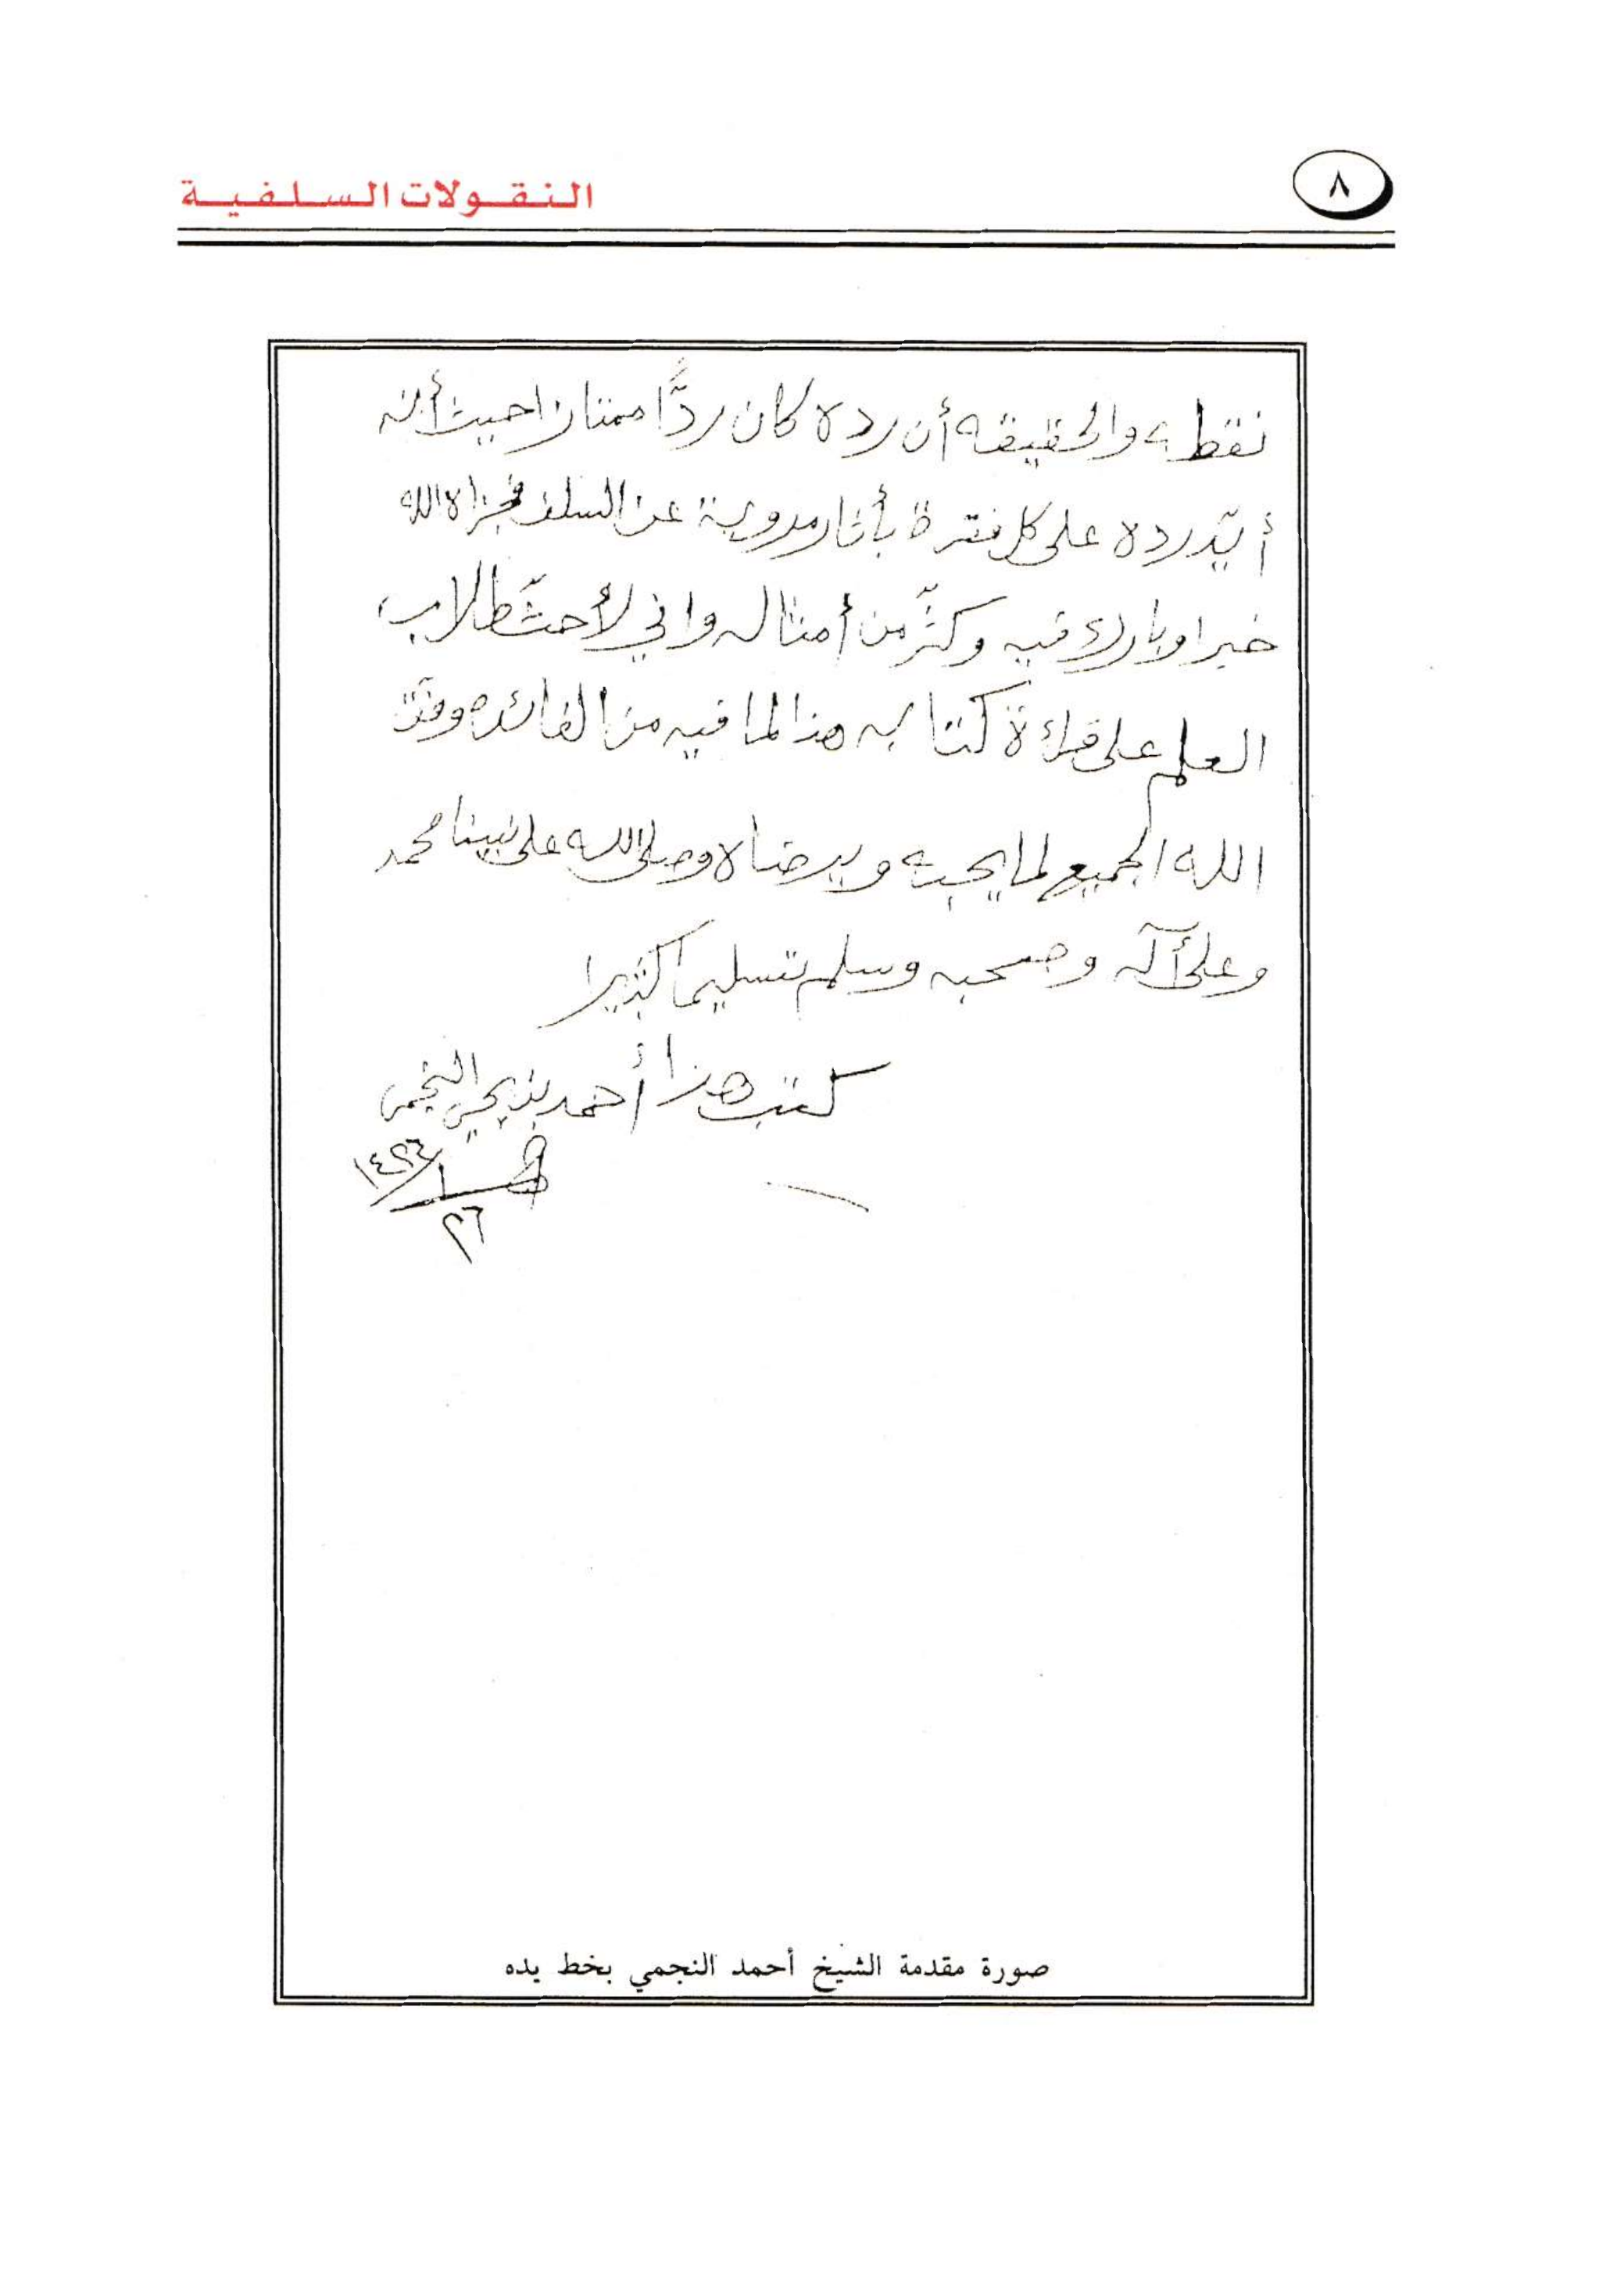 ٨
النقولات السلفية
نقطه والحقيقه أن رده كان ردًّا ممتازا حيث أنه
أيّد رده على كل فقرة بأثار مروية عن السلف فجزاه الله
خيرا وبارك فيه وكثّر من أمثاله واني لأحثّ طلاب
العلم على قراءة كتابه هذا لما فيه من الفائده وفّق
الله الجميع لما يحبه ويرضاه وصلى الله على نبينا محمد
وعلى آله وصحبه وسلم تسليما كثيرا
كتب هذا أحمد بن يحي النجمي
٢٦ / ١ / ١٤٢٦
صورة مقدمة الشيخ أحمد النجمي بخط يده